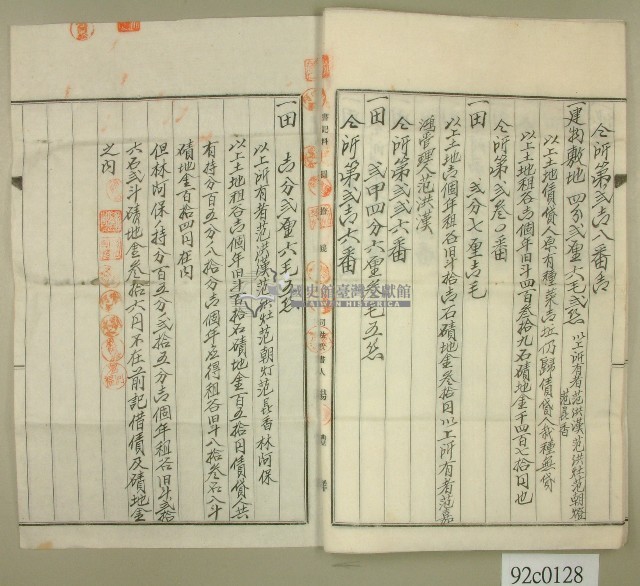 仝所第弍壱八番壱
一建物敷地 四分弍厘六毛弍糸 以上所有者范洪漢范洪灶范朝燈
范長香
以上土地債貸人原有種菜壱坵仍歸債貸人我種無貸
以上土地租谷壱個年旧斗四百叁拾九石磧地金千四百七拾円也
仝所第弍叁〇番
一田 弍分七厘壱毛
以上土地壱個年租谷旧斗拾壱石磧地金叁拾円以上所有者范嘉
鴻管理人范洪漢
仝所第弍弍六番
一田 弍甲四分六厘叁毛五糸
仝所第弍壱六番
一田 壱分弍厘六毛五糸
以上所有者范洪漢范洪灶范朝灯范長香林阿保
以上土地租谷壱個年旧斗百拾石磧地金百五拾円債貸人共
有持分百五分八拾分壱個年应得租谷旧斗八拾叁石八斗
磧地金百拾四円在內
但林阿保持分百五分弍拾五分壱個年租谷旧斗弍拾
六石弍斗磧地金叁拾六円不在前記借債及磧地金
之內
登記料
國史館臺灣文獻館
TAIWAN HISTORICA
92c0128